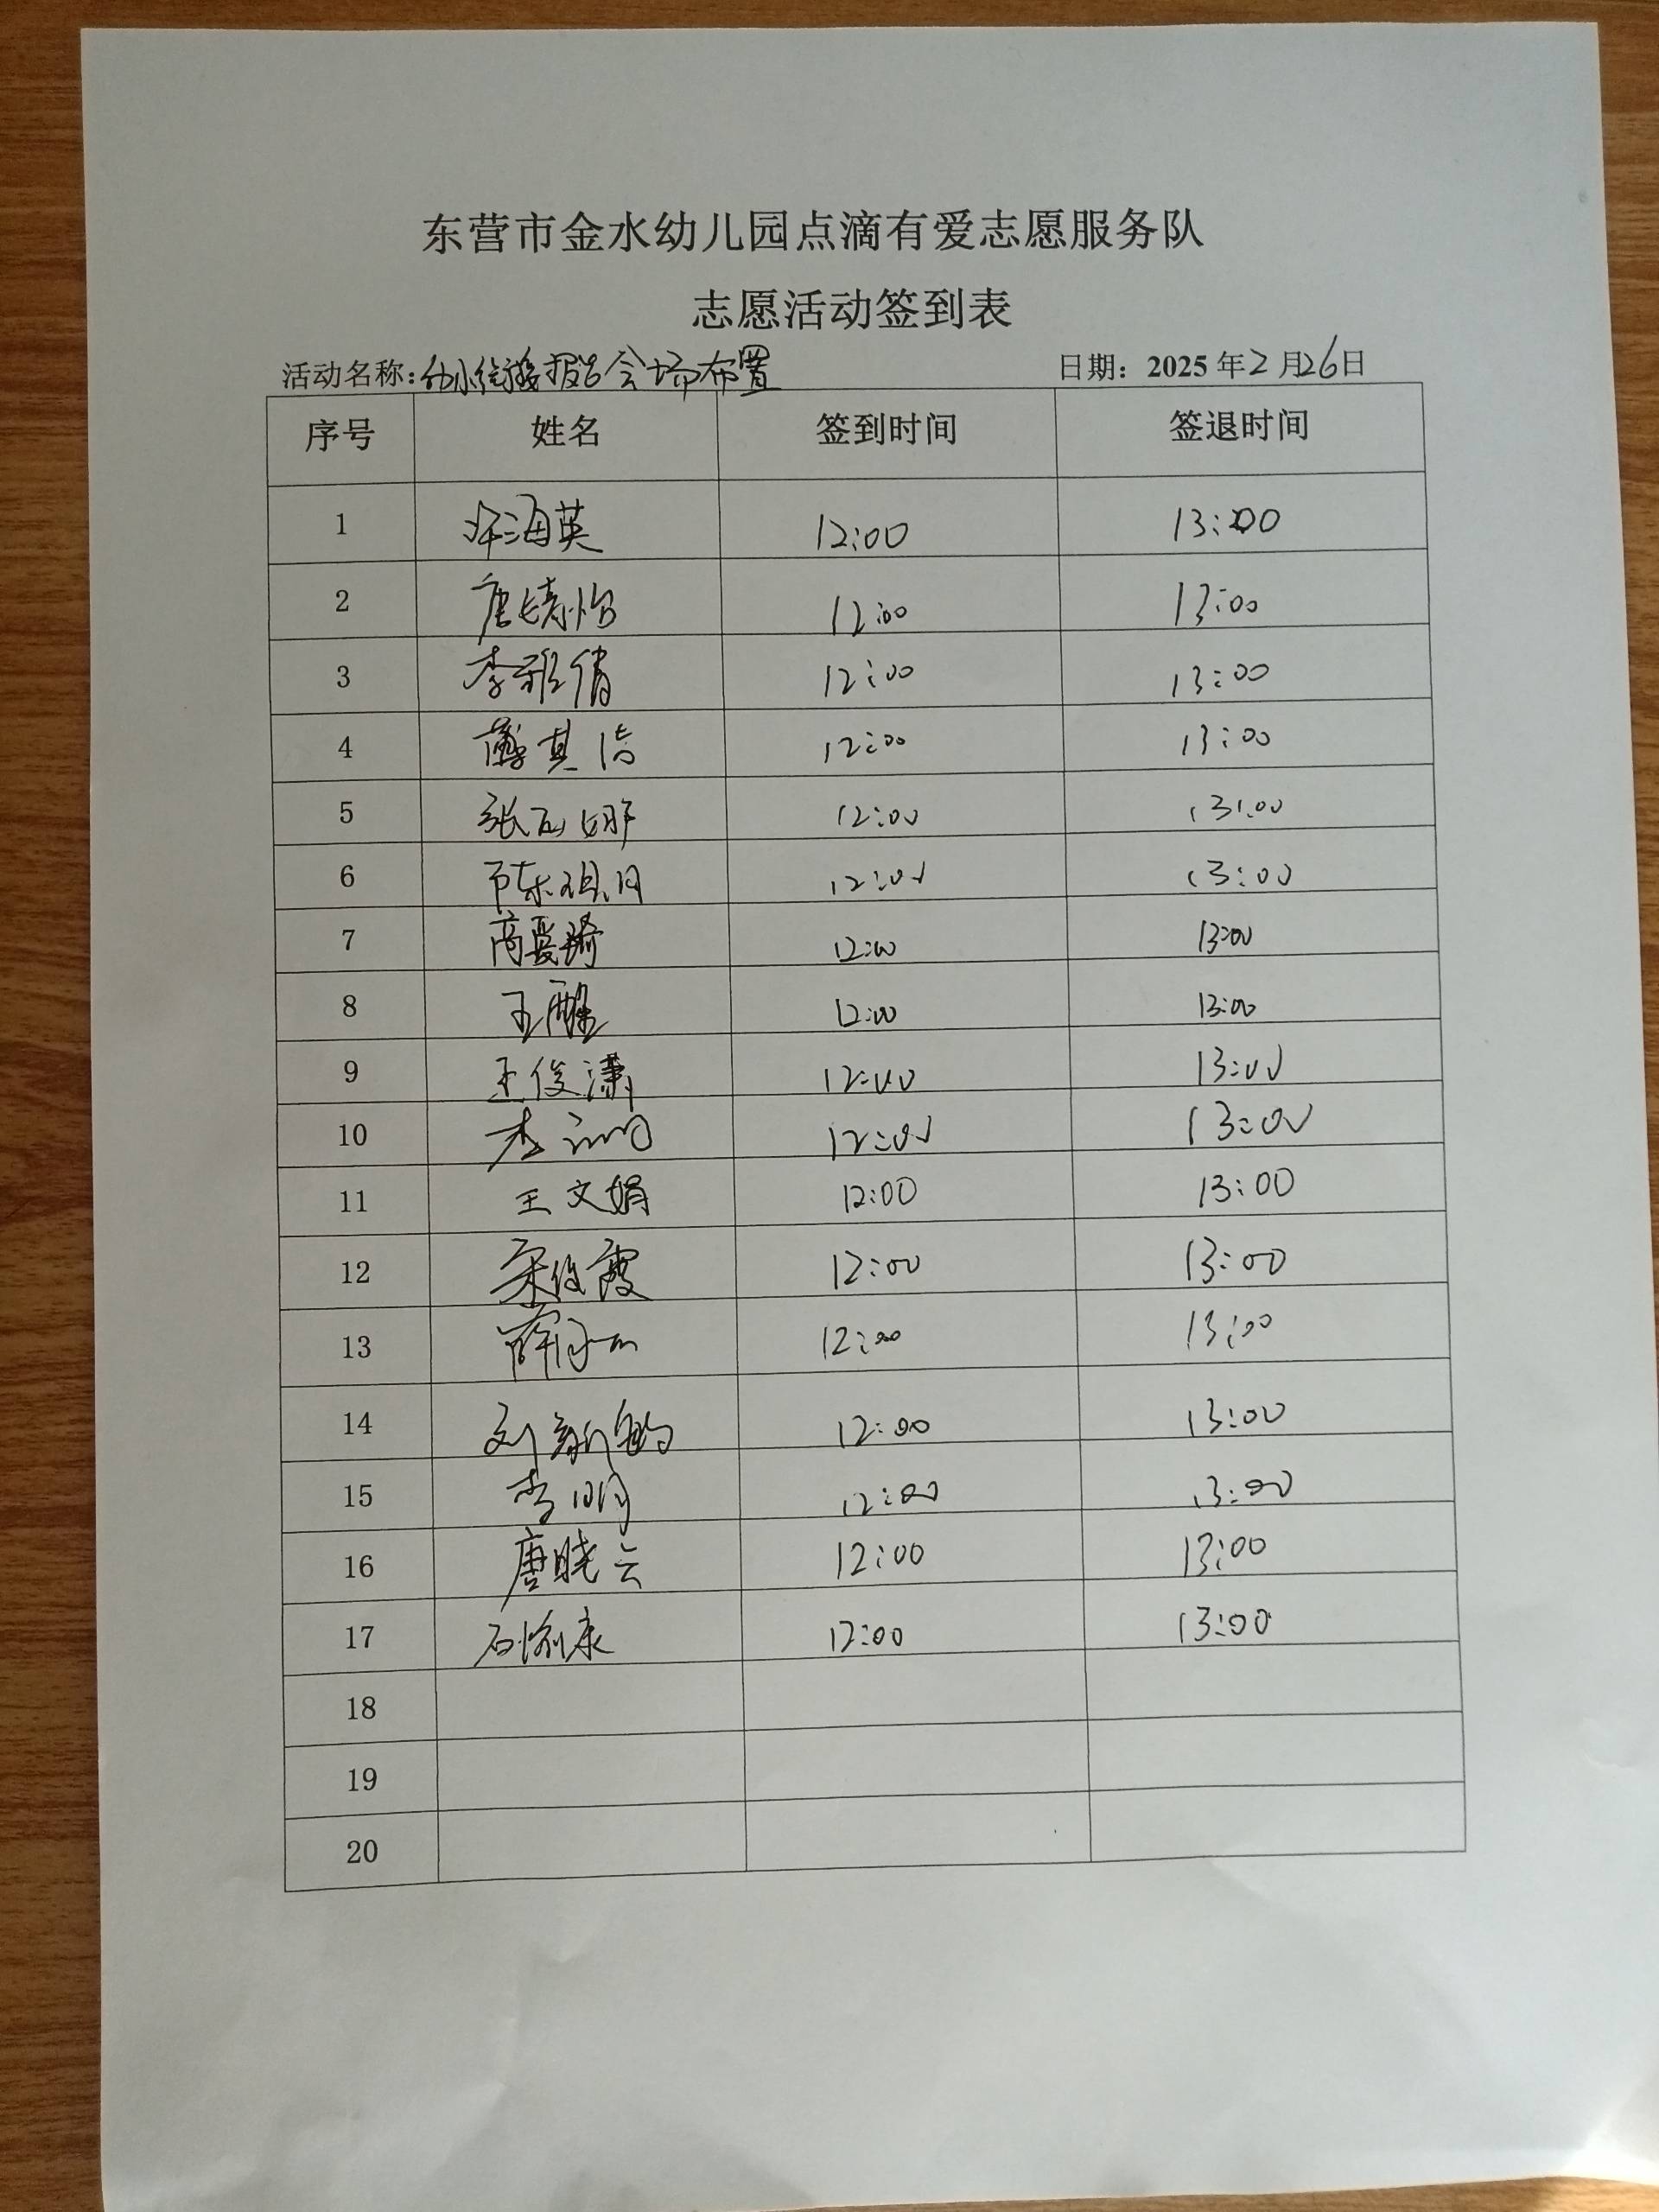 东营市金水幼儿园点滴有爱志愿服务队
志愿活动签到表
活动名称:幼小衔接报告会场布置 日期：2025年2月26日
序号 姓名 签到时间 签退时间
1 海英 12:00 13:00
2 唐婧怡 12:00 13:00
3 李雅倩 12:00 13:00
4 薄其洁 12:00 13:00
5 张 娜 12:00 13:00
6 陈 12:00 13:00
7 高夏琦 12:00 13:00
8 王 12:00 13:00
9 王俊潇 12:00 13:00
10 李 12:00 13:00
11 王文娟 12:00 13:00
12 宋俊霞 12:00 13:00
13 薛 12:00 13:00
14 刘新 12:00 13:00
15 李明 12:00 13:00
16 唐晓云 12:00 13:00
17 石愉康 12:00 13:00
18
19
20